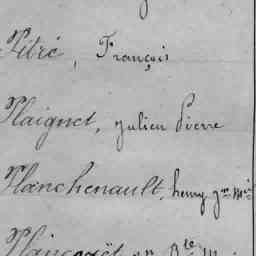 Pitré, François
Plaignet, Julien Pierre
Planchenault, henry Jn Mie
Plancoët